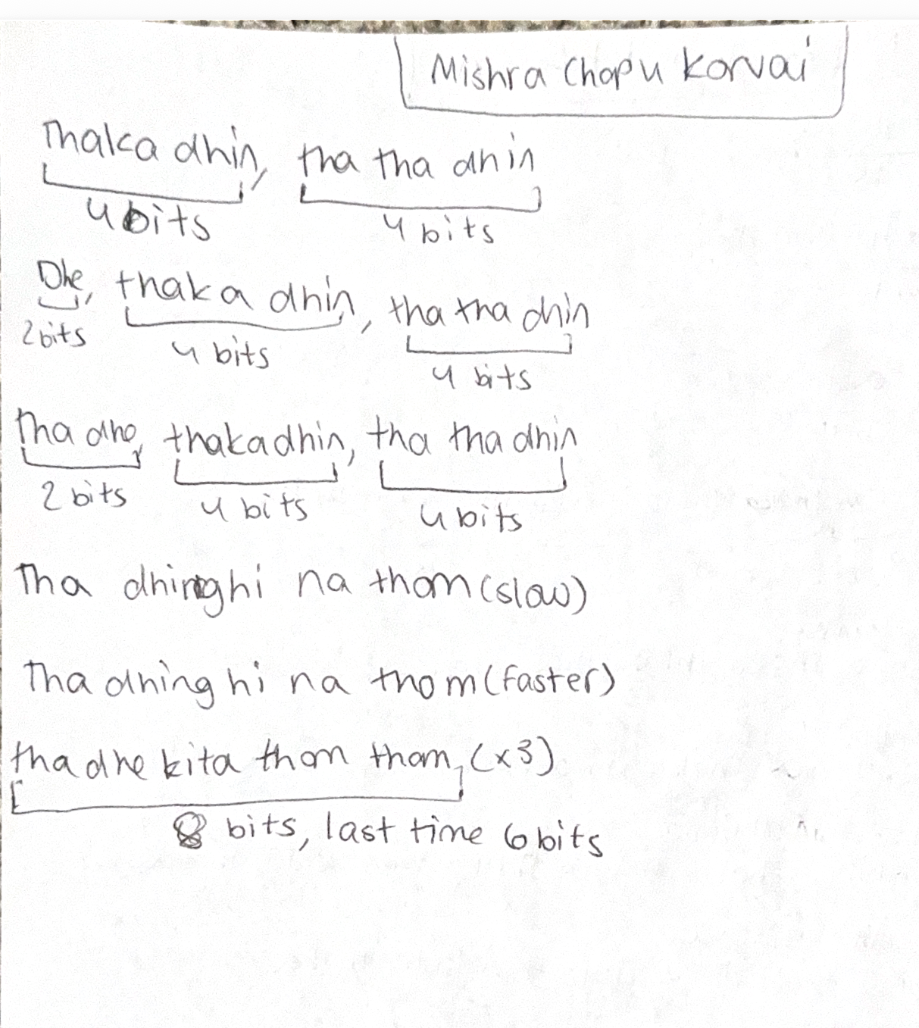 Mishra Chapu Korvai
Thaka dhin, tha tha dhin
4 bits 4 bits
Dhe, thaka dhin, tha tha dhin
2 bits 4 bits 4 bits
Tha dhe, thakadhin, tha tha dhin
2 bits 4 bits 4 bits
Tha dhinghi na thom (slow)
Tha dhing hi na thom (faster)
tha dhe kita thom thom, (x3)
8 bits, last time 6 bits